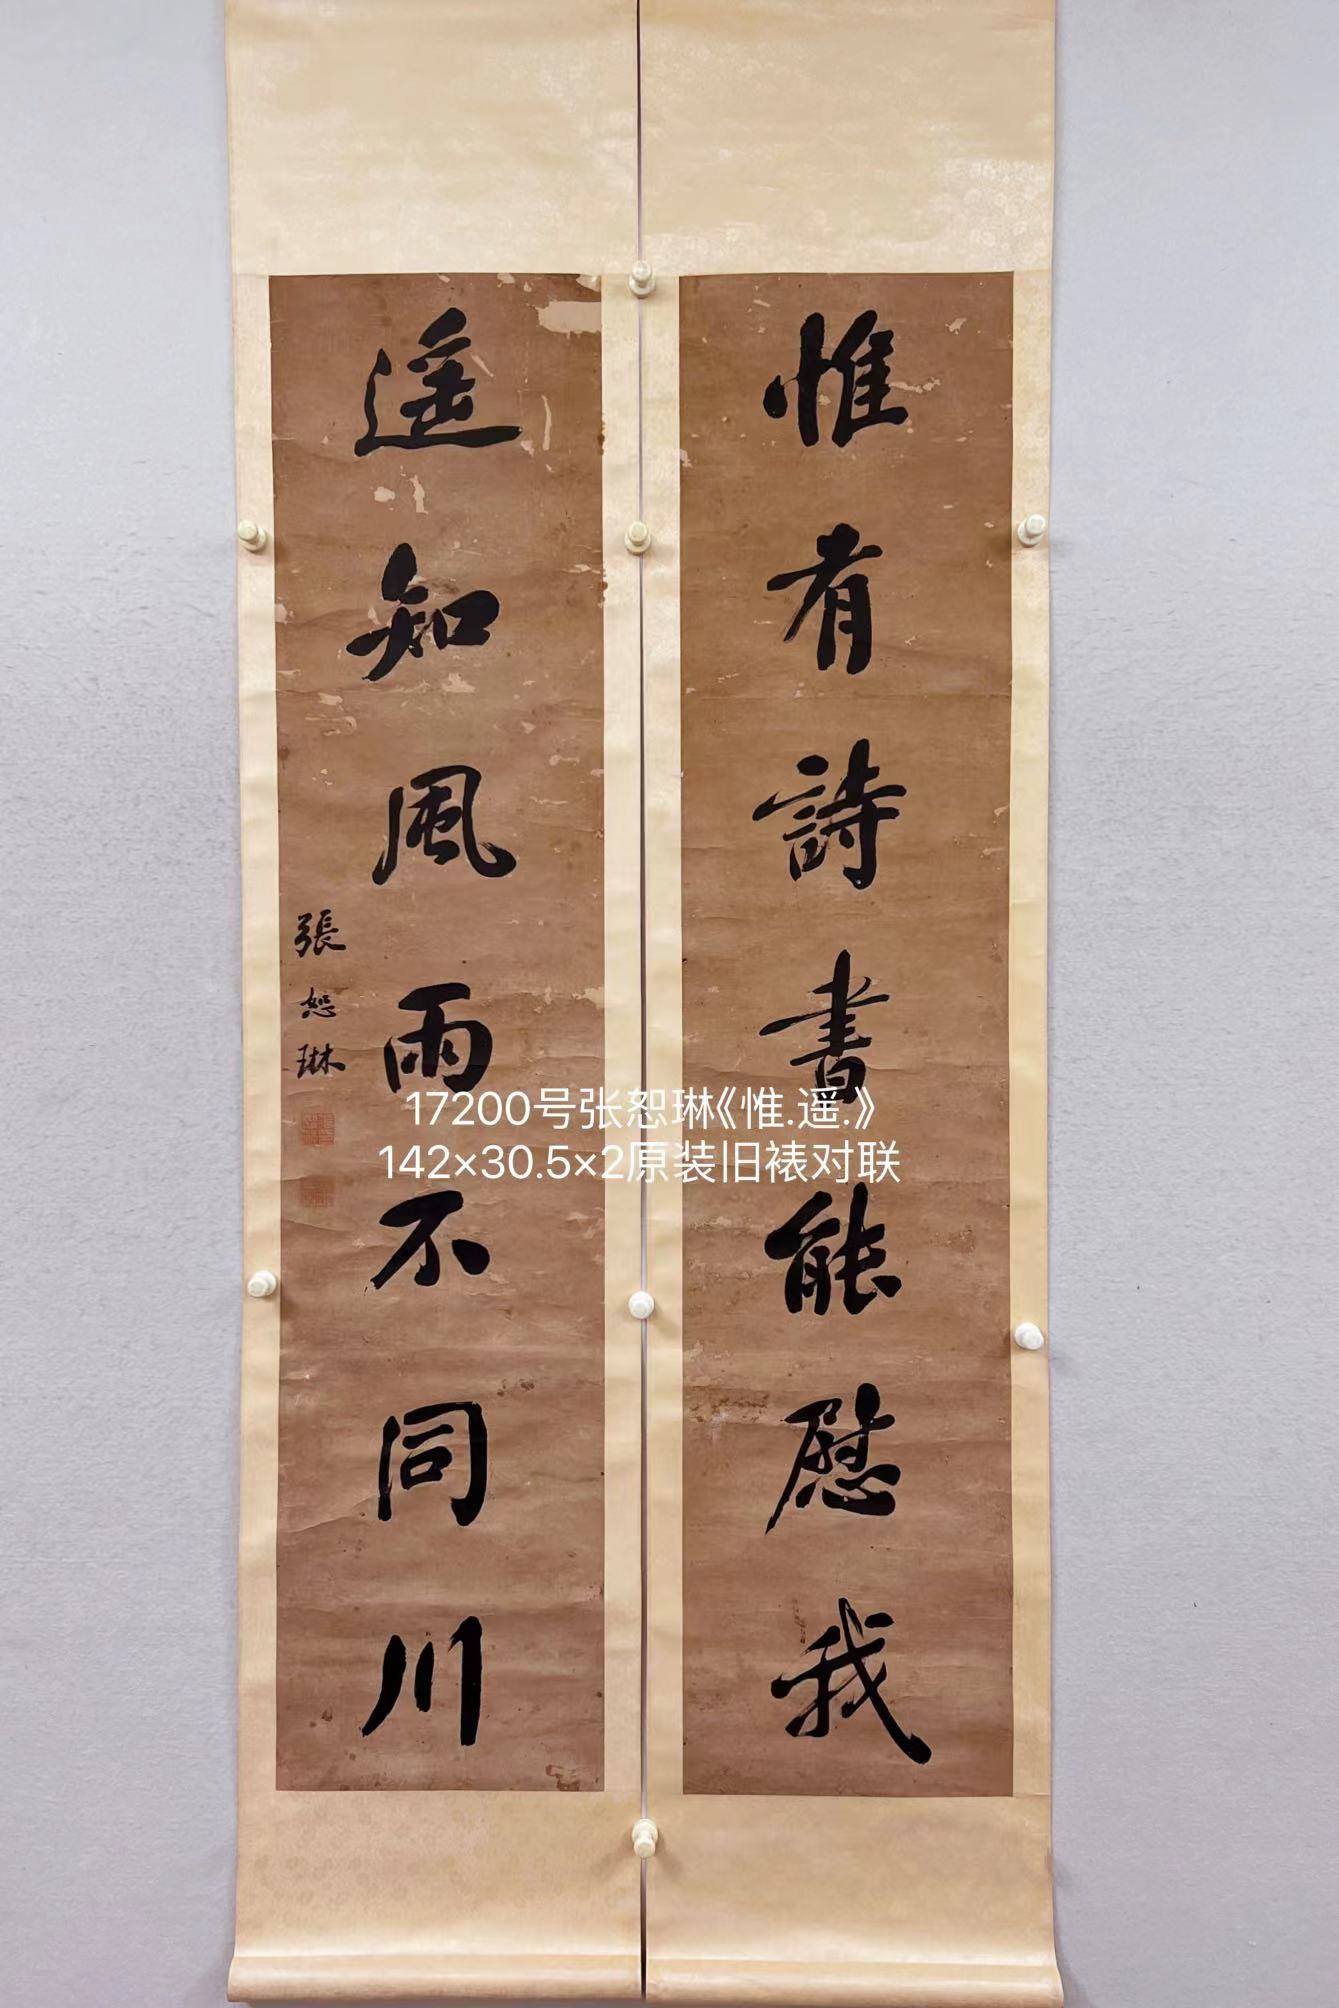 惟有詩書能慰我
遥知風雨不同川
張恕琳
17200号张恕琳《惟.遥.》
142×30.5×2原装旧裱对联